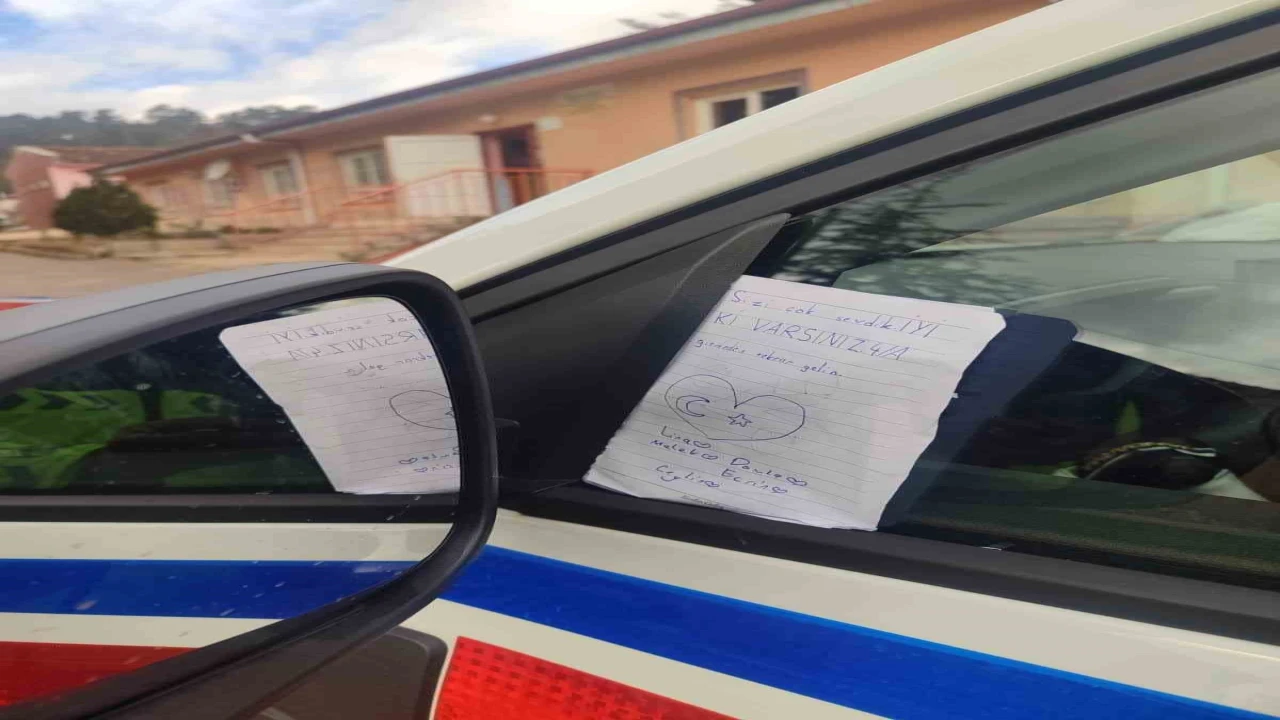 Sizi çok sevdik İYİ
Kİ VARSINIZ. 4/A
tekrar gelin
Lina
Melek Davla
Ecrin
Ceylin